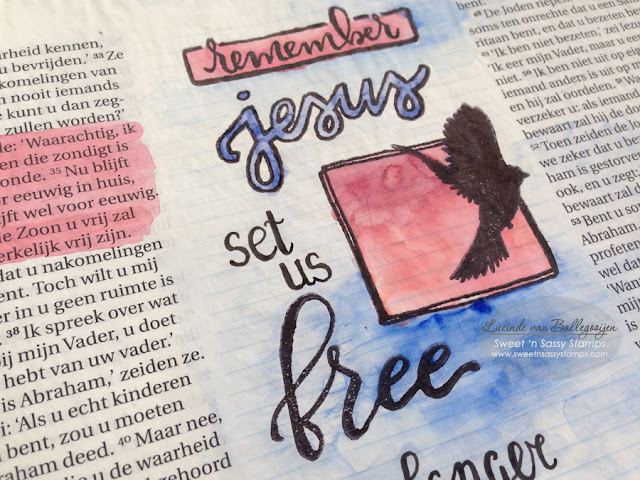 arheid kennen,
u bevrijden.’ 33 Ze
akomelingen van
n nooit iemands
e kunt u dan zeg-
zullen worden?’
de: ‘Waarachtig, ik
en die zondigt is
onde. 35 Nu blijft
or eeuwig in huis,
ijft wel voor eeuwig.
e Zoon u vrij zal
erkelijk vrij zijn.
dat u nakomelingen
ent. Toch wilt u mij
er in u geen ruimte is
38 Ik spreek over wat
bij mijn Vader, u doet
hebt van uw vader.’
is Abraham,’ zeiden ze.
i: ‘Als u echt kinderen
bent, zou u moeten
raham deed. 40 Maar nee,
die u de waarheid
gehoord
remember
jesus
set
us
free
longer
bent.
48 De Joden riepen
soms ten onrechte dat u een Sa
ritaan bent, en dat u bezeten be
49 ‘Ik ben niet bezeten,’ zei Jezus
‘Ik eer mijn Vader, maar u
niet. 50 Ik ben niet uit op
iemand anders is uit op
en hij zal oordelen.
verzeker u: als iemand
bewaart zal hij de
52 Toen zeiden de
we zeker dat u be
ham is gestorven
ook, en u zegt
bewaart zal
53 Bent u so
Abraham
profeten
wel dat
‘Wan
Lucinde van Ballegooijen
Sweet 'n Sassy Stamps
www.sweetnsassystamps.com